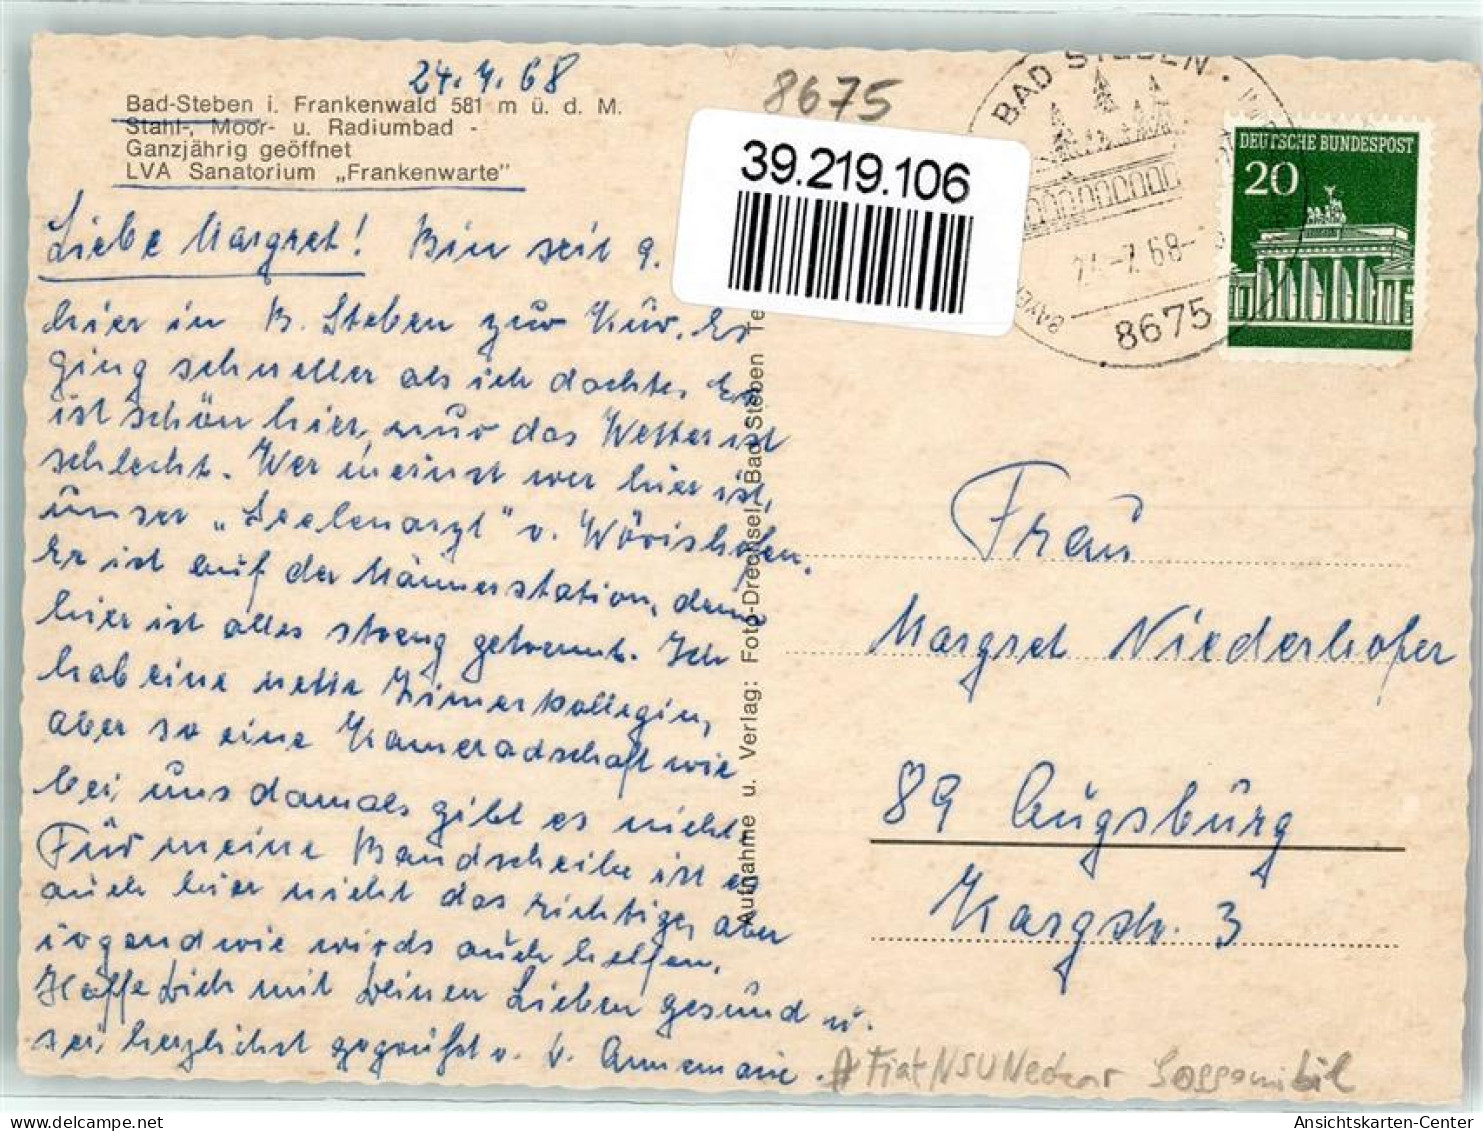 24.7.68
Bad-Steben i. Frankenwald 581 m ü. d. M.
Stahl-, Moor- u. Radiumbad -
Ganzjährig geöffnet
LVA Sanatorium „Frankenwarte"
8675
39.219.106
BAD STEBEN
24.-7.68-
8675
DEUTSCHE BUNDESPOST
20
Liebe Margret! Bin seit 9.
hier in B. Steben zur Kur. Es
ging schneller als ich dachte. Es
ist schön hier, nur das Wetter ist
schlecht. Wer meinst wer hier ist,
unser „Seelenarzt" v. Wörishofen.
Er ist auf der Männerstation, denn
hier ist alles streng getrennt. Ich
hab eine nette Zimerkollegin,
aber so eine Kameradschaft wie
bei uns damals gibt es nicht
Für meine Bandscheibe ist es
auch hier nicht das richtige, aber
irgendwie wirds auch helfen.
Hoffe Dich mit Deinen Lieben gesund u.
sei herzlichst gegrüßt v. d. Annemarie.
Aufnahme u. Verlag: Foto-Drechsel, Bad Steben Te
Frau
Margret Niederhofer
89 Augsburg
Kargstr. 3
Fiat NSU Neckar
Ansichtskarten-Center